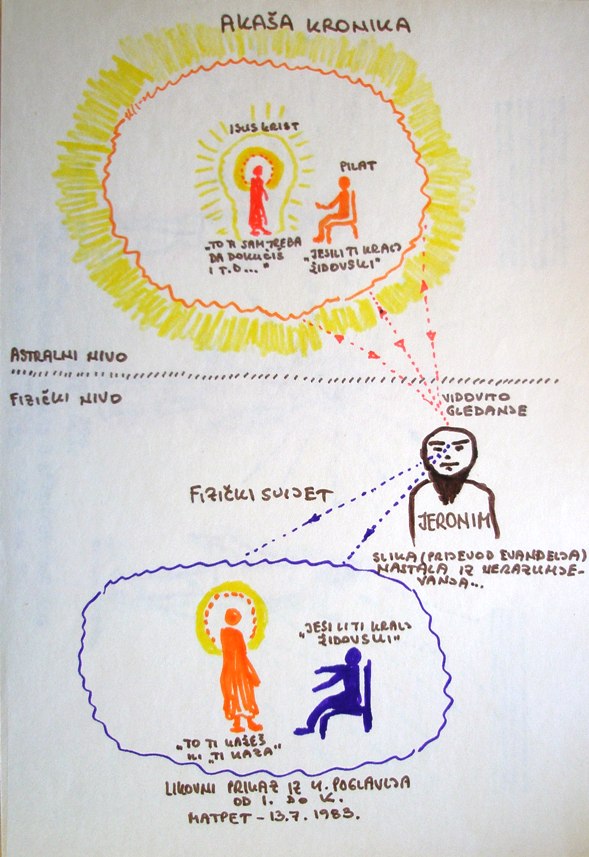 AKAŠA KRONIKA
ISUS KRIST
PILAT
„TO TI SAM TREBA
DA DOKUČIŠ
I T.D..."
„JESI LI TI KRALJ
ŽIDOVSKI"
ASTRALNI NIVO
FIZIČKI NIVO
VIDOVITO
GLEDANJE
FIZIČKI SVIJET
JERONIM
SLIKA (PRIJEVOD EVANĐELJA)
NASTALA IZ NERAZUMJE-
VANJA...
„JESI LI TI KRALJ
ŽIDOVSKI"
„TO TI KAŽEŠ
ILI „TI KAZA"
LIKOVNI PRIKAZ IZ 4. POGLAVLJA
OD I. DO K.
MATPET - 13.7.1983.